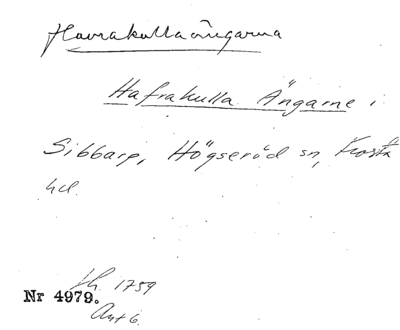 Havrakullaängarna
Hafrakulla Ängarne i
Sibbarp, Högseröd sn, Frosta
hd.
1759
Nr 4979.
Akt 6.